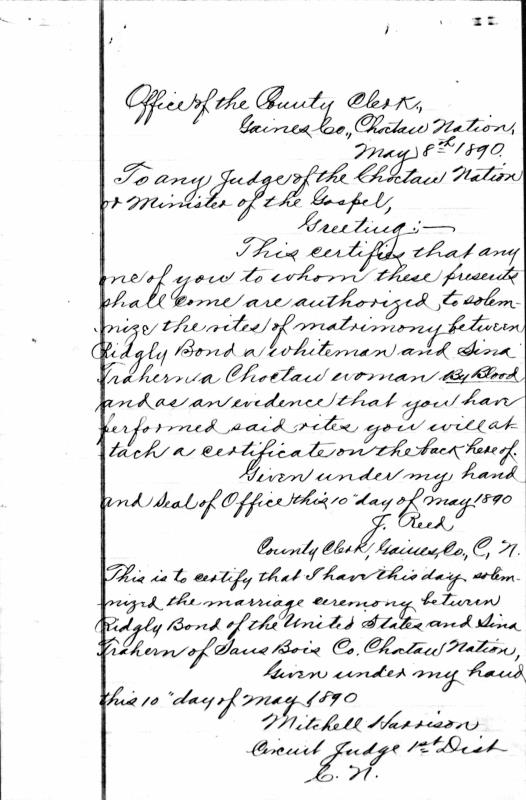 Office of the County Clerk.,
Gaines Co., Choctaw Nation,
May 8th 1890.
To any Judge of the Choctaw Nation
or Minister of the Gospel,
Greeting:—
This certifies that any
one of you to whom these presents
shall come are authorized to solem-
nize the rites of matrimony between
Ridgly Bond a whiteman and Sina
Trahern a Choctaw woman By Blood
and as an evidence that you have
performed said rites you will at
tach a certificate on the back hereof.
Given under my hand
and Seal of Office this 10" day of May 1890
J. Reed
County Clerk, Gaines, Co, C, N.
This is to certify that I have this day solem-
nized the marriage ceremony between
Ridgly Bond of the United States and Sina
Trahern of Sans Bois Co. Choctaw Nation,
Given under my hand
this 10" day of May 1890
Mitchell Harrison
Circuit Judge 1st Dist
C. N.